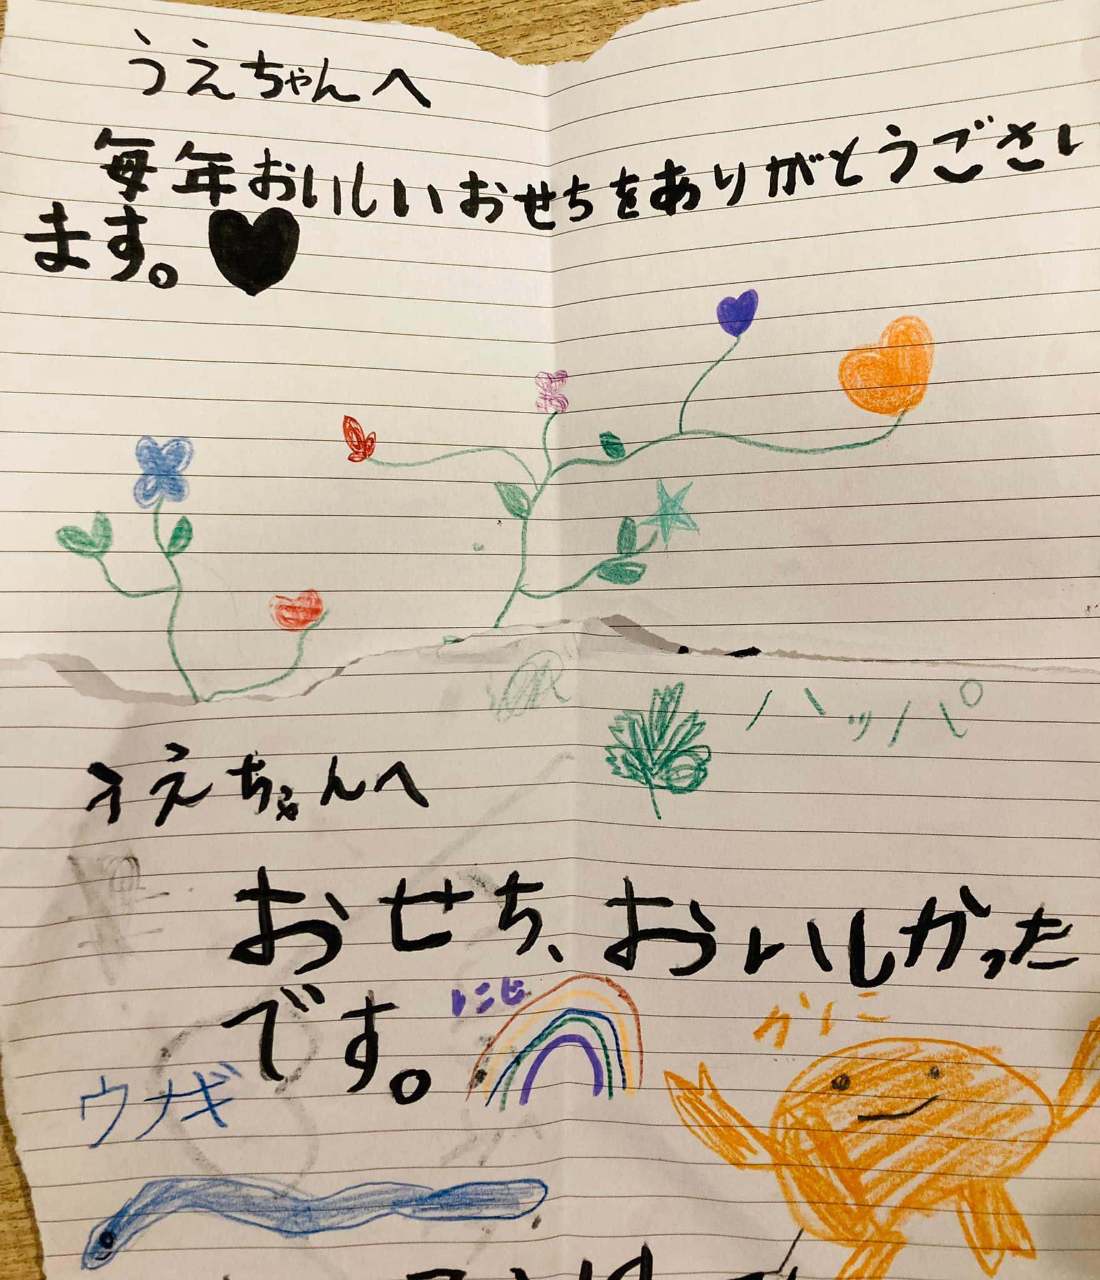 うえちゃんへ
毎年おいしいおせちをありがとうござい
ます。
ハッパ
うえちゃんへ
おせち、おいしかった
です。
にじ
かに
ウナギ